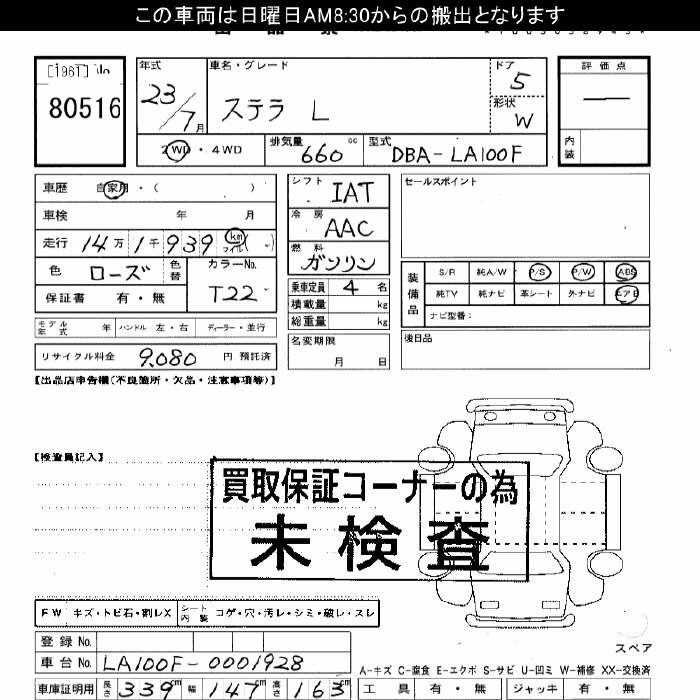 この車両は日曜日AM8:30からの搬出となります
[1961] No
80516
年式
23/7月
車名・グレード
ステラ L
ドア
5
形状
W
評価点
—
内装
2WD・4WD
排気量
660 cc
型式
DBA-LA100F
車歴 自家用・( )
車検 年 月
走行 14万1千939 km マイル ( )
色 ローズ 色替
カラーNo.
T22
保証書 有・無
モデル年式 年 ハンドル 左・右 ディーラー・並行
リサイクル料金 9,080 円 預託済
シフト
IAT
冷房
AAC
燃料
ガソリン
乗車定員 4 名
積載量 kg
総重量 kg
名変期限
月 日
セールスポイント
装備品
S/R 純A/W P/S P/W ABS
純TV 純ナビ 革シート 外ナビ エアB
ナビ型番:
後日品
【出品店申告欄(不良箇所・欠品・注意事項等)】
【検査員記入】
買取保証コーナーの為
未検査
FW キズ・トビ石・割レX シート内装 コゲ・穴・汚レ・シミ・破レ・スレ
登録 No.
車台 No. LA100F-0001928
車庫証明用 長さ 339cm 幅 147cm 高さ 163cm
スペア
A-キズ C-腐食 E-エクボ S-サビ U-凹ミ W-補修 XX-交換済
工具 有・無 ジャッキ 有・無